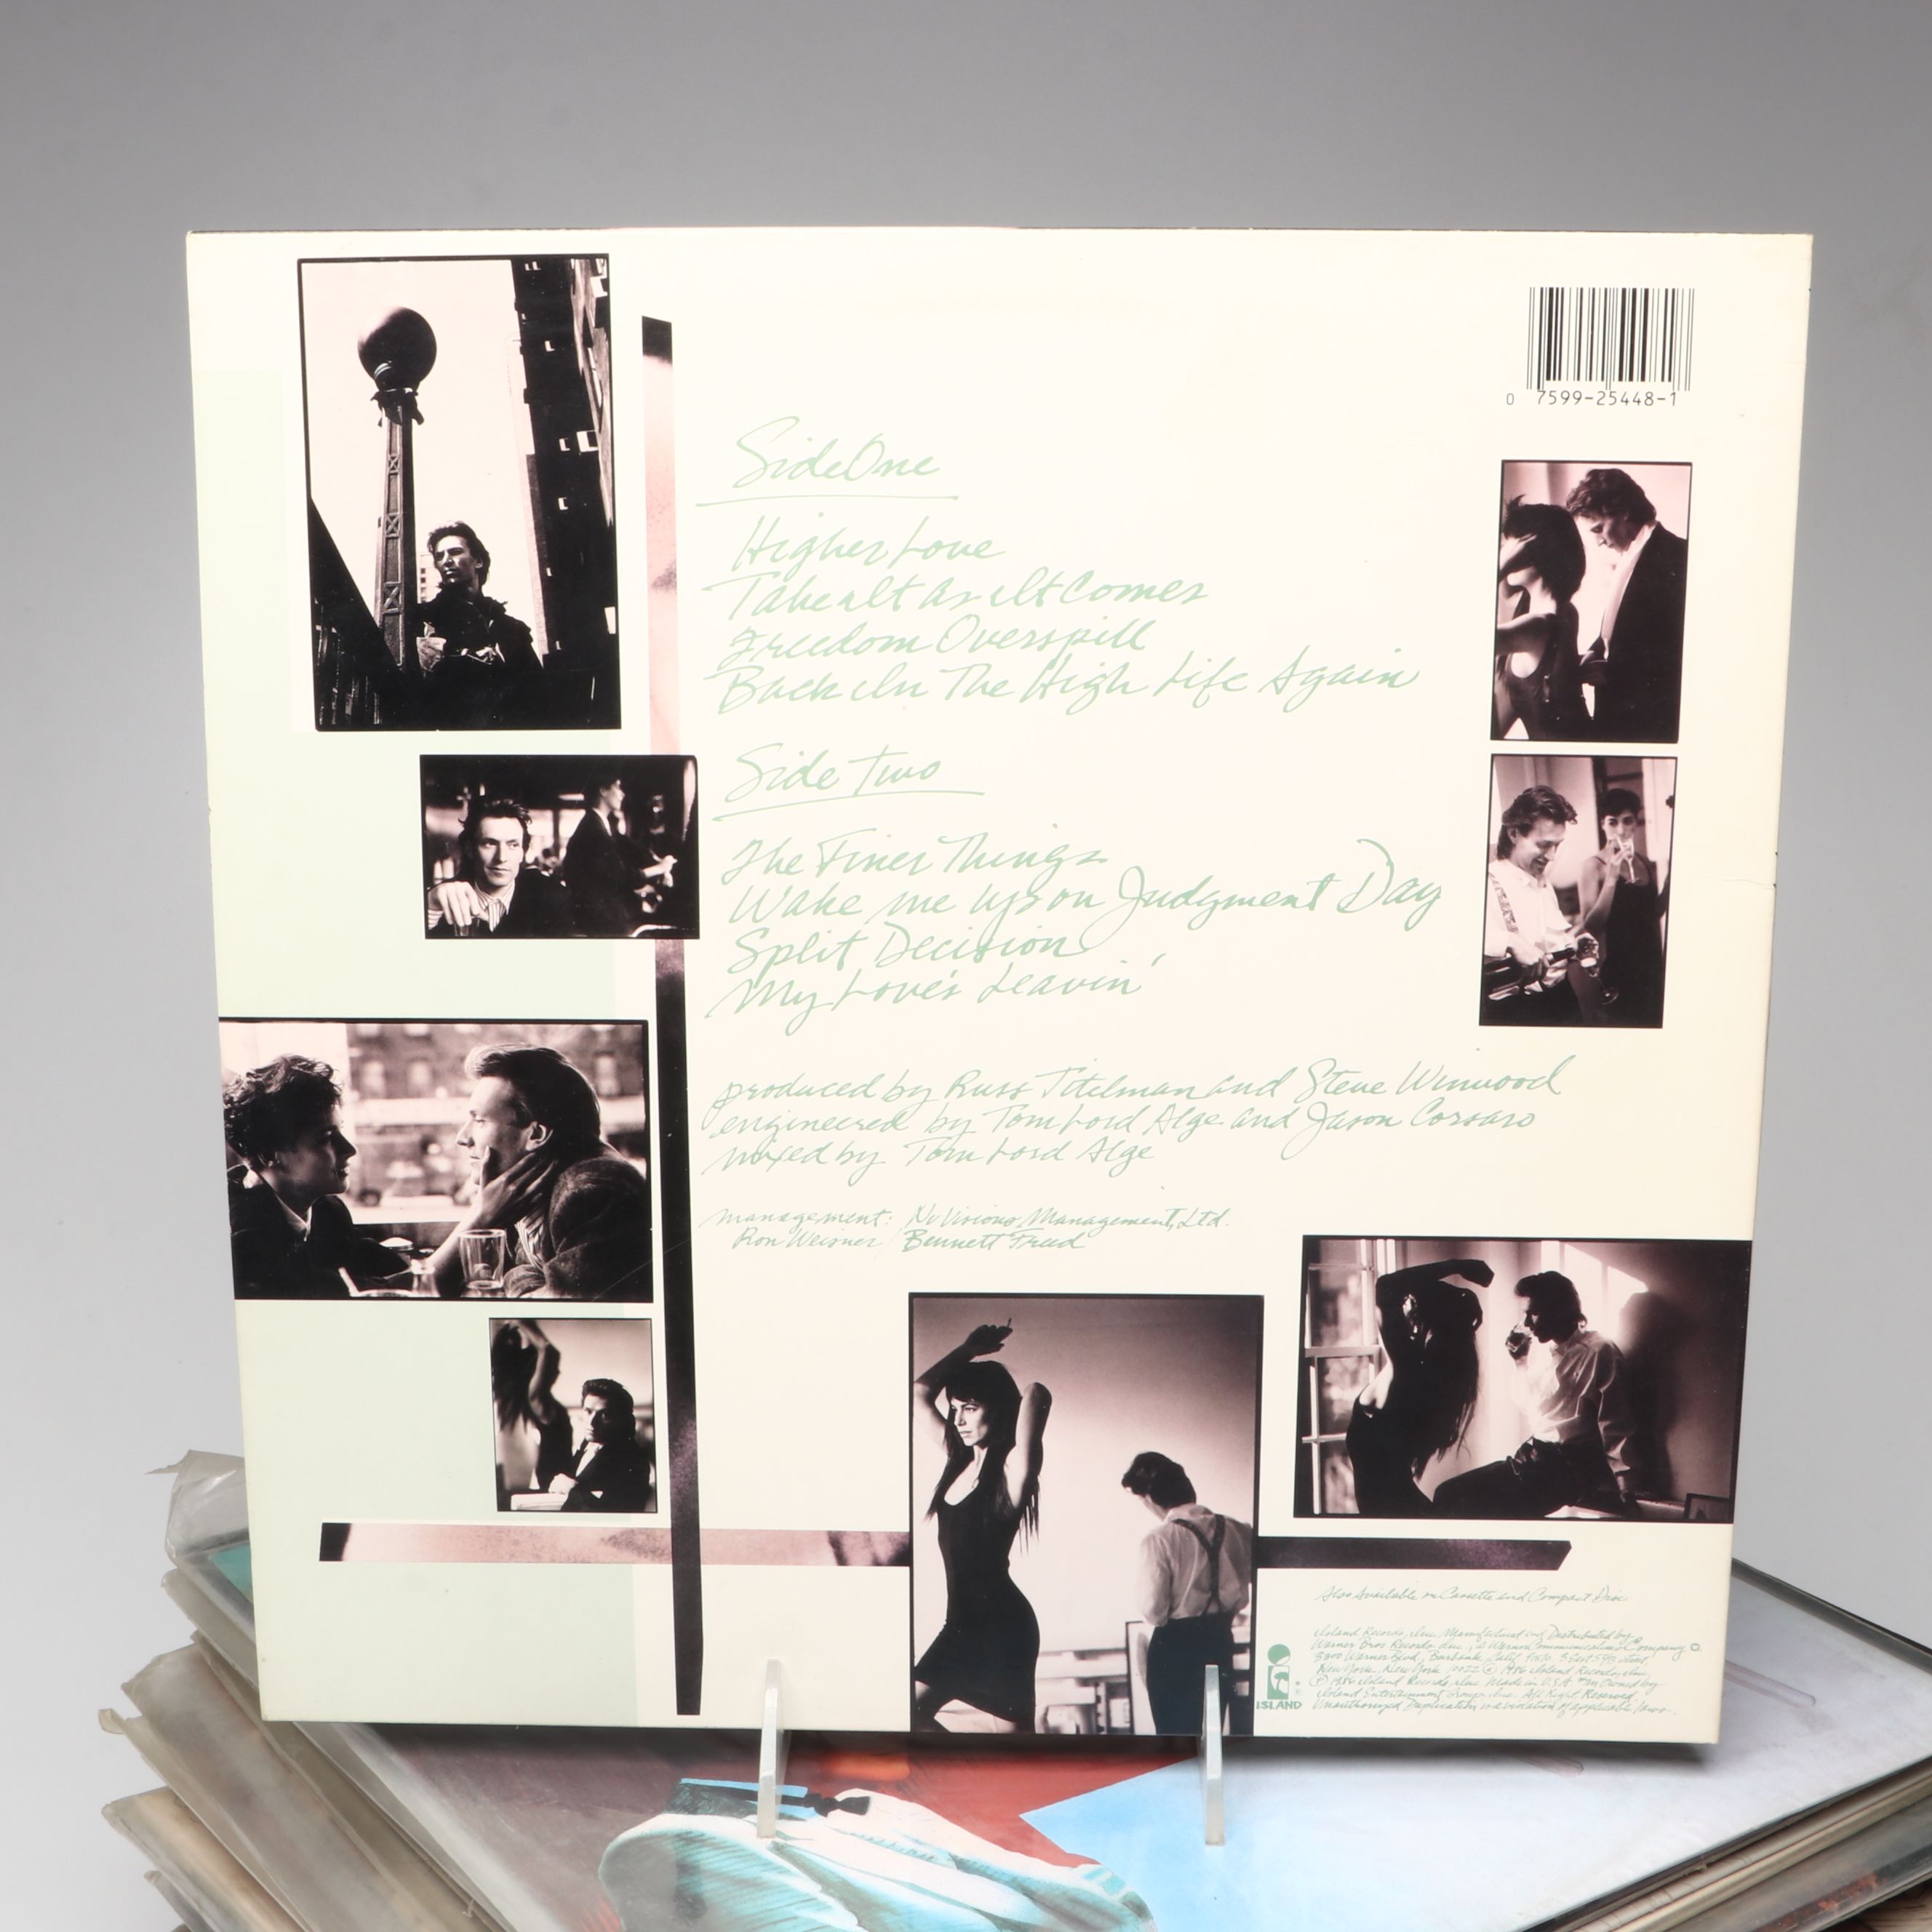 0 7599-25448-1
Side One
Higher Love
Take It As It Comes
Freedom Overspill
Back In The High Life Again
Side Two
The Finer Things
Wake me Up on Judgment Day
Split Decision
My Love's Leavin'
produced by Russ Titelman and Steve Winwood
engineered by Tom Lord Alge and Jason Corsaro
mixed by Tom Lord Alge
management: NuVisions Management, Ltd.
Ron Weisner / Bennett Freed
Also Available on Cassette and Compact Disc
Island Records, Inc. Manufactured and Distributed by
Warner Bros. Records Inc., a Warner Communications Company
3300 Warner Blvd., Burbank, Calif.
New York, New York 10022 © 1986 Island Records, Inc.
℗ 1986 Island Records, Inc. Made in U.S.A. owned by
Island Entertainment Group, Inc. All Rights Reserved.
Unauthorized Duplication is a violation of applicable laws.
ISLAND